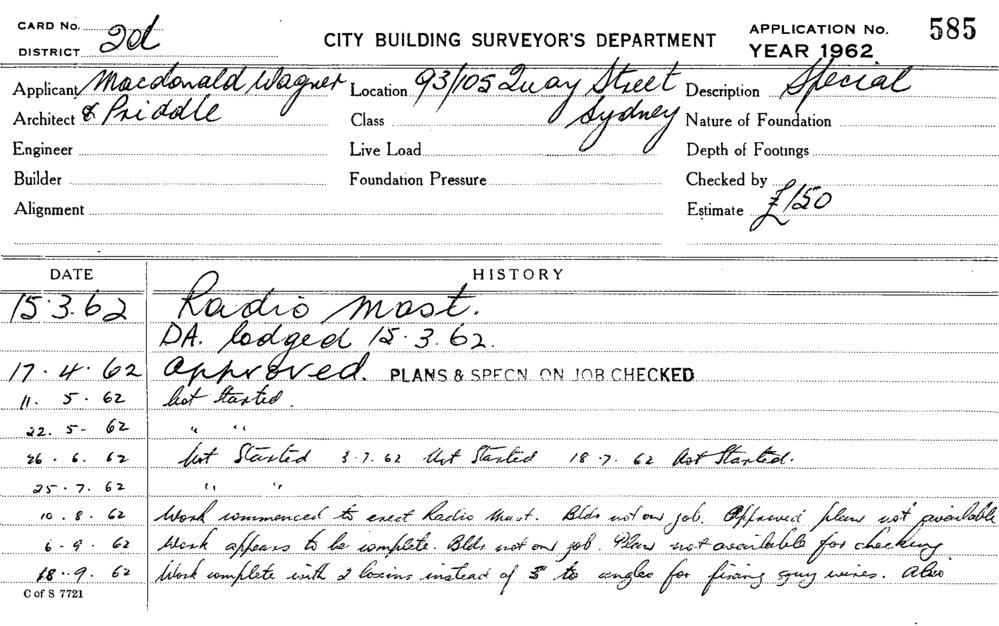 CARD No. 2d
DISTRICT
CITY BUILDING SURVEYOR'S DEPARTMENT
APPLICATION No. 585
YEAR 1962
Applicant Macdonald Wagner Location 93/105 Quay Street Description Special
Architect & Priddle Class Sydney Nature of Foundation
Engineer Live Load Depth of Footings
Builder Foundation Pressure Checked by
Alignment Estimate £150
DATE HISTORY
15.3.62 Radio Mast.
DA. lodged 15.3.62.
17.4.62 Approved. PLANS & SPECN. ON JOB CHECKED
11. 5. 62 Not Started.
22. 5- 62 " "
26. 6. 62 Not Started 3-7.62 Not Started 18-7. 62 Not Started.
25-7. 62 " "
10. 8. 62 Work commenced to erect Radio Mast. Bldr not on job. Approved plan not available
6-9. 62 Work appears to be complete. Bldr not on job. Plan not available for checking
18.-9. 62 Work complete with 2 instead of 3 to angles for fixing guy wires. Also
C of S 7721